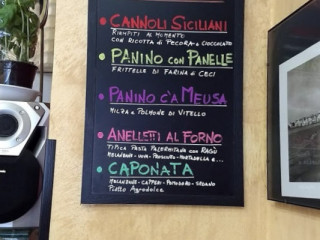 CANNOLI SICILIANI
RIEMPITI AL MOMENTO
CON RICOTTA DI PECORA E CIOCCOLATO
PANINO CON PANELLE
FRITTELLE DI FARINA DI CECI
PANINO C'A MEUSA
MILZA E POLMONE DI VITELLO
ANELLETTI AL FORNO
TIPICA PASTA PALERMITANA CON RAGÙ
MELANZANE - UOVA - PROSCIUTTO - MORTADELLA E...
CAPONATA
MELANZANE - CAPPERI - POMODORO - SEDANO
PIATTO AGRODOLCE